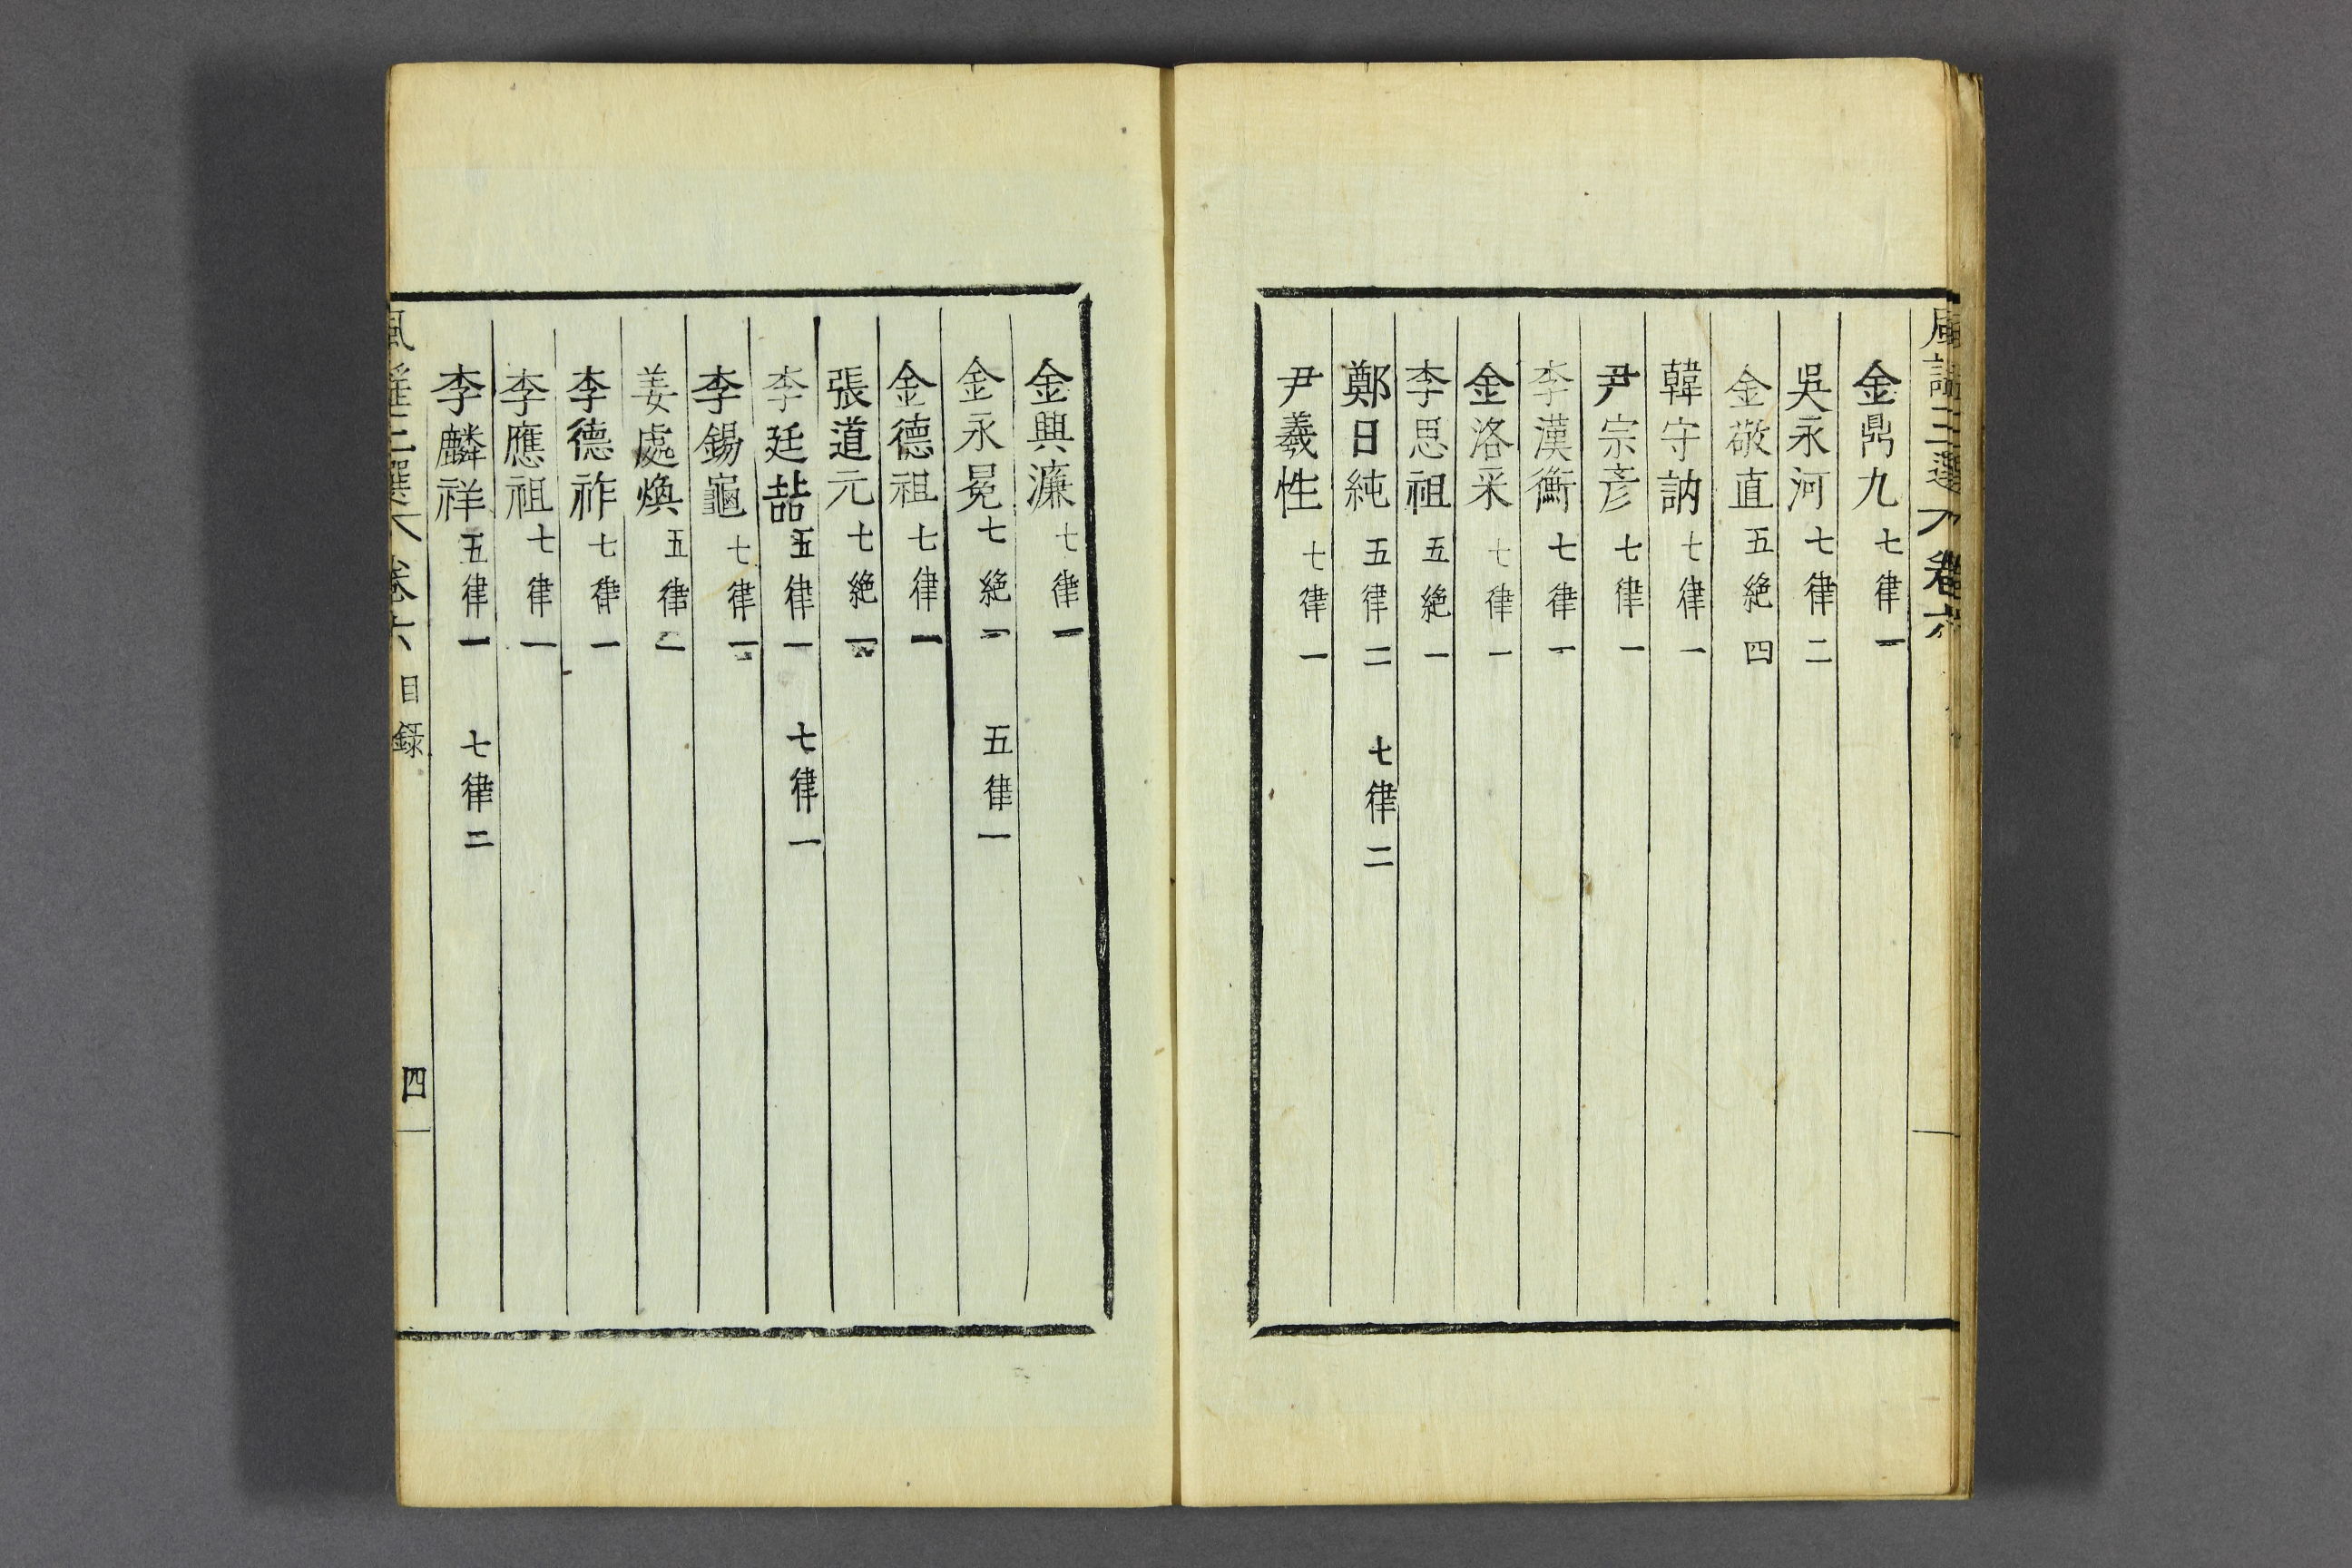 風謠三選 卷六
金鼎九 七律一
吳永河 七律二
金敬直 五絶四
韓守訥 七律一
尹宗彦 七律一
李漢衡 七律一
金洛采 七律一
李思祖 五絶一
鄭日純 五律二 七律二
尹羲性 七律一
金興濂 七律一
金永冕 七絶一 五律一
金德祖 七律一
張道元 七絶一
李廷喆 五律一 七律一
李錫龜 七律一
姜處煥 五律二
李德祚 七律一
李應祖 七律一
李麟祥 五律一 七律二
風謠三選 卷六 目録 四